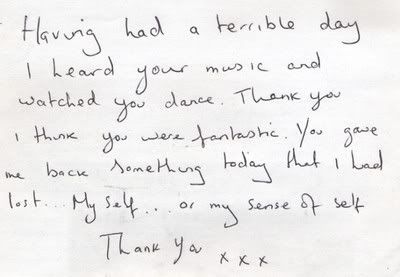 Having had a terrible day
I heard your music and
watched you dance. Thank you
I think you were fantastic. You gave
me back something today that I had
lost... My self... or my sense of self
Thank You x x x